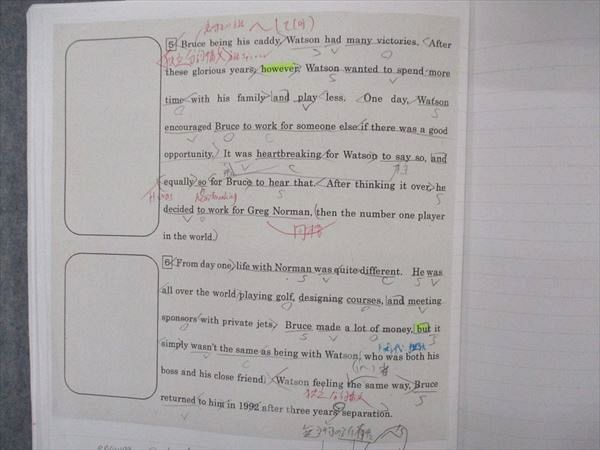 5 Bruce being his caddy, Watson had many victories. After
these glorious years, however, Watson wanted to spend more
time with his family and play less. One day, Watson
encouraged Bruce to work for someone else if there was a good
opportunity. It was heartbreaking for Watson to say so, and
equally so for Bruce to hear that. After thinking it over, he
heartbreaking
decided to work for Greg Norman, (then the number one player
同格
in the world.)
6 From day one, life with Norman was quite different. He was
all over the world playing golf, designing courses, and meeting
sponsors with private jets. Bruce made a lot of money, but it
simply wasn't the same as being with Watson, who was both his
boss and his close friend. Watson feeling the same way, Bruce
returned to him in 1992 after three years' separation.